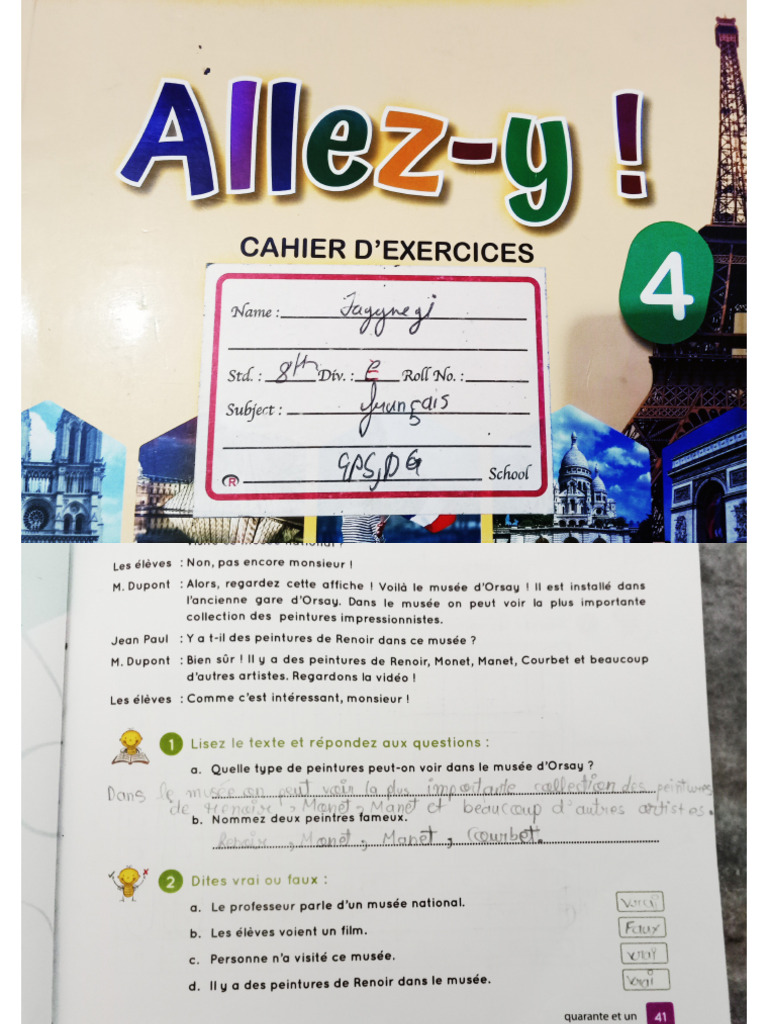 Allez-y !
CAHIER D'EXERCICES
4
Name :
Std. : 8th Div. : E Roll No. :
Subject : français
R GPS, DG School
Les élèves : Non, pas encore monsieur !
M. Dupont : Alors, regardez cette affiche ! Voilà le musée d'Orsay ! Il est installé dans
l'ancienne gare d'Orsay. Dans le musée on peut voir la plus importante
collection des peintures impressionnistes.
Jean Paul : Y a t-il des peintures de Renoir dans ce musée ?
M. Dupont : Bien sûr ! Il y a des peintures de Renoir, Monet, Manet, Courbet et beaucoup
d'autres artistes. Regardons la vidéo !
Les élèves : Comme c'est intéressant, monsieur !
1 Lisez le texte et répondez aux questions :
a. Quelle type de peintures peut-on voir dans le musée d'Orsay ?
Dans le musée on peut voir la plus importante collection des peintures
de Renoir, Monet, Manet et beaucoup d'autres artistes.
b. Nommez deux peintres fameux.
Renoir, Monet, Manet, Courbet.
2 Dites vrai ou faux :
a. Le professeur parle d'un musée national. Vrai
b. Les élèves voient un film. Faux
c. Personne n'a visité ce musée. Vrai
d. Il y a des peintures de Renoir dans le musée. Vrai
quarante et un 41